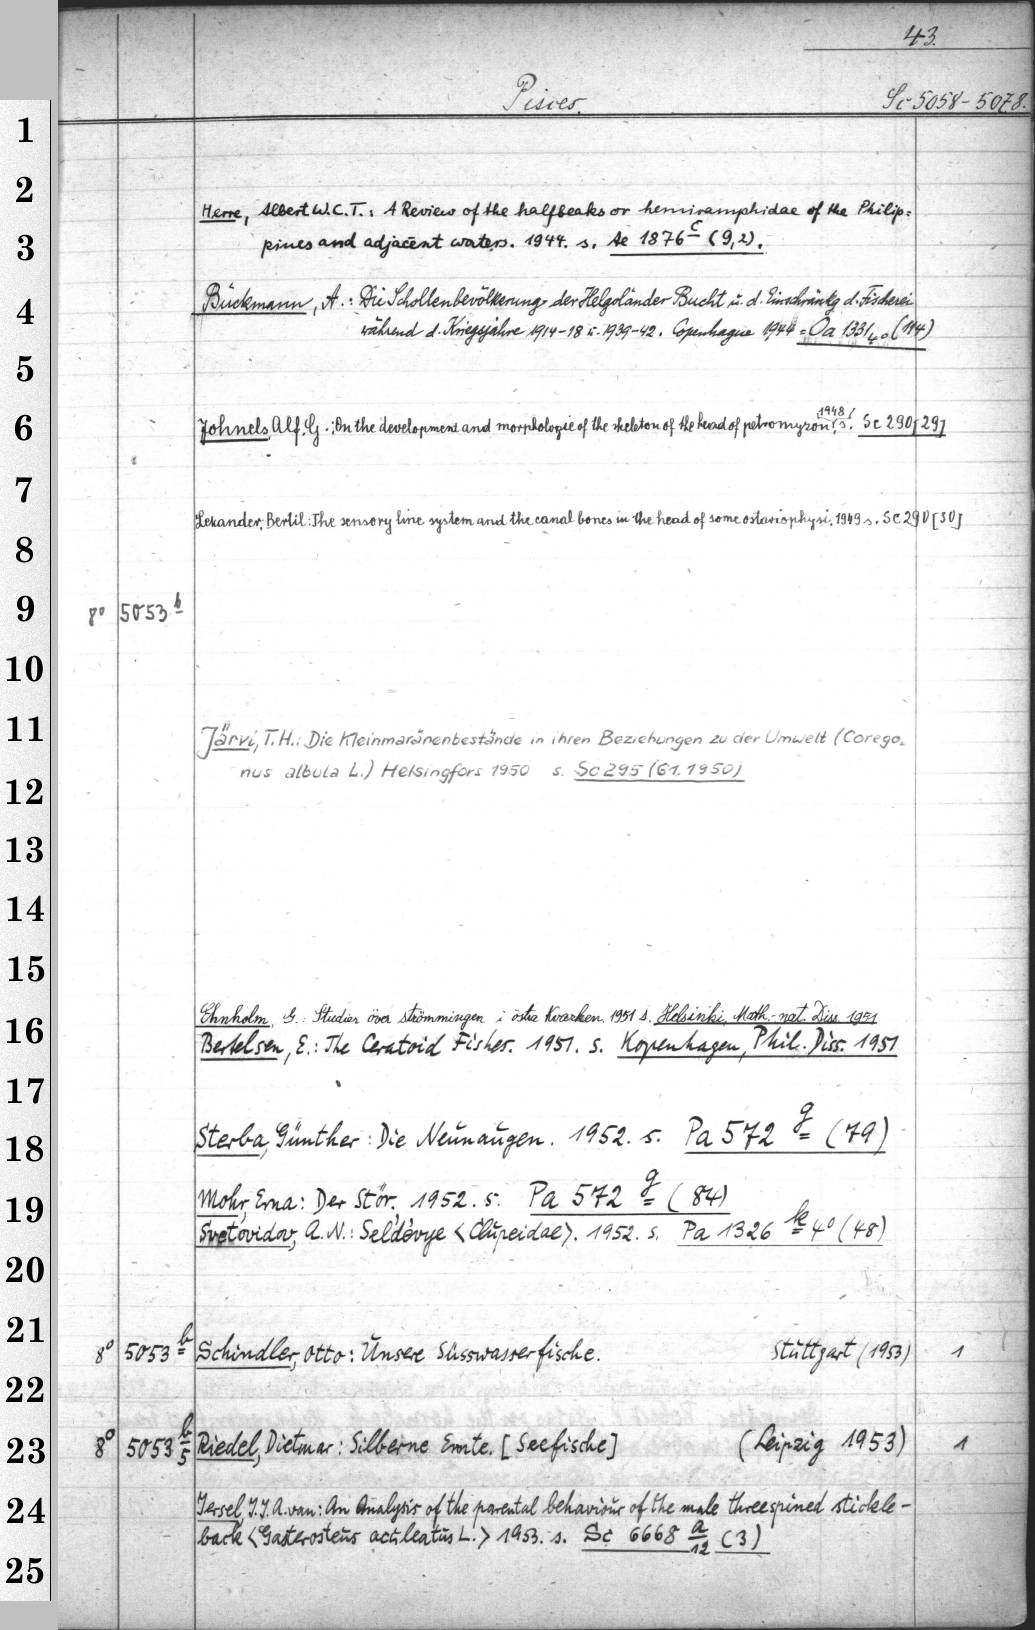 43.
Pisces.
Sc 5058-5078.
1
2
Herre, Albert W.C.T.: A Review of the halfbeaks or hemiramphidae of the Philip=
3
pines and adjacent waters. 1944. s. Ae 1876 c (9,2).
4
Bückmann, A.: Die Schollenbevölkerung der Helgoländer Bucht u. d. Einschränkg d. Fischerei
während d. Kriegsjahre 1914-18 u. 1939-42. Copenhague 1944 = Oa 1331 4° (114)
5
6
Johnels, Alf. G.: On the development and morphologie of the skeleton of the head of petromyzon. 1948 s. Sc 290[29]
7
Lekander, Bertil: The sensory line system and the canal bones in the head of some ostariophysi. 1949 s. Sc 290 [30]
8
9
8° 5053 b
10
11
Järvi, T.H.: Die Kleinmaränenbestände in ihren Beziehungen zu der Umwelt (Corego-
nus albula L.) Helsingfors 1950 s. Sc 295 (61.1950)
12
13
14
15
Ehnholm, G.: Studier över strömmingen i östra Kvarken. 1951 s. Helsinki, Math.-nat. Diss. 1951
16
Bertelsen, E.: The Ceratoid Fishes. 1951. s. Kopenhagen, Phil. Diss. 1951
17
18
Sterba, Günther: Die Neunaugen. 1952. s. Pa 572 g (79)
19
Mohr, Erna: Der Stör. 1952. s. Pa 572 g (84)
Svetovidov, A.N.: Sel'dевye <Clupeidae>. 1952. s. Pa 1326 k 4° (48)
20
21
8° 5053 b Schindler, Otto: Unsere Süsswasserfische. Stuttgart (1953) 1
22
23
8° 5053 b/5 Riedel, Dietmar: Silberne Ernte. [Seefische] (Leipzig 1953) 1
24
Iersel, J.J.A. van: An Analysis of the parental behaviour of the male threespined stickle-
back <Gasterosteus aculeatus L.> 1953. s. Sc 6668 a/12 (3)
25